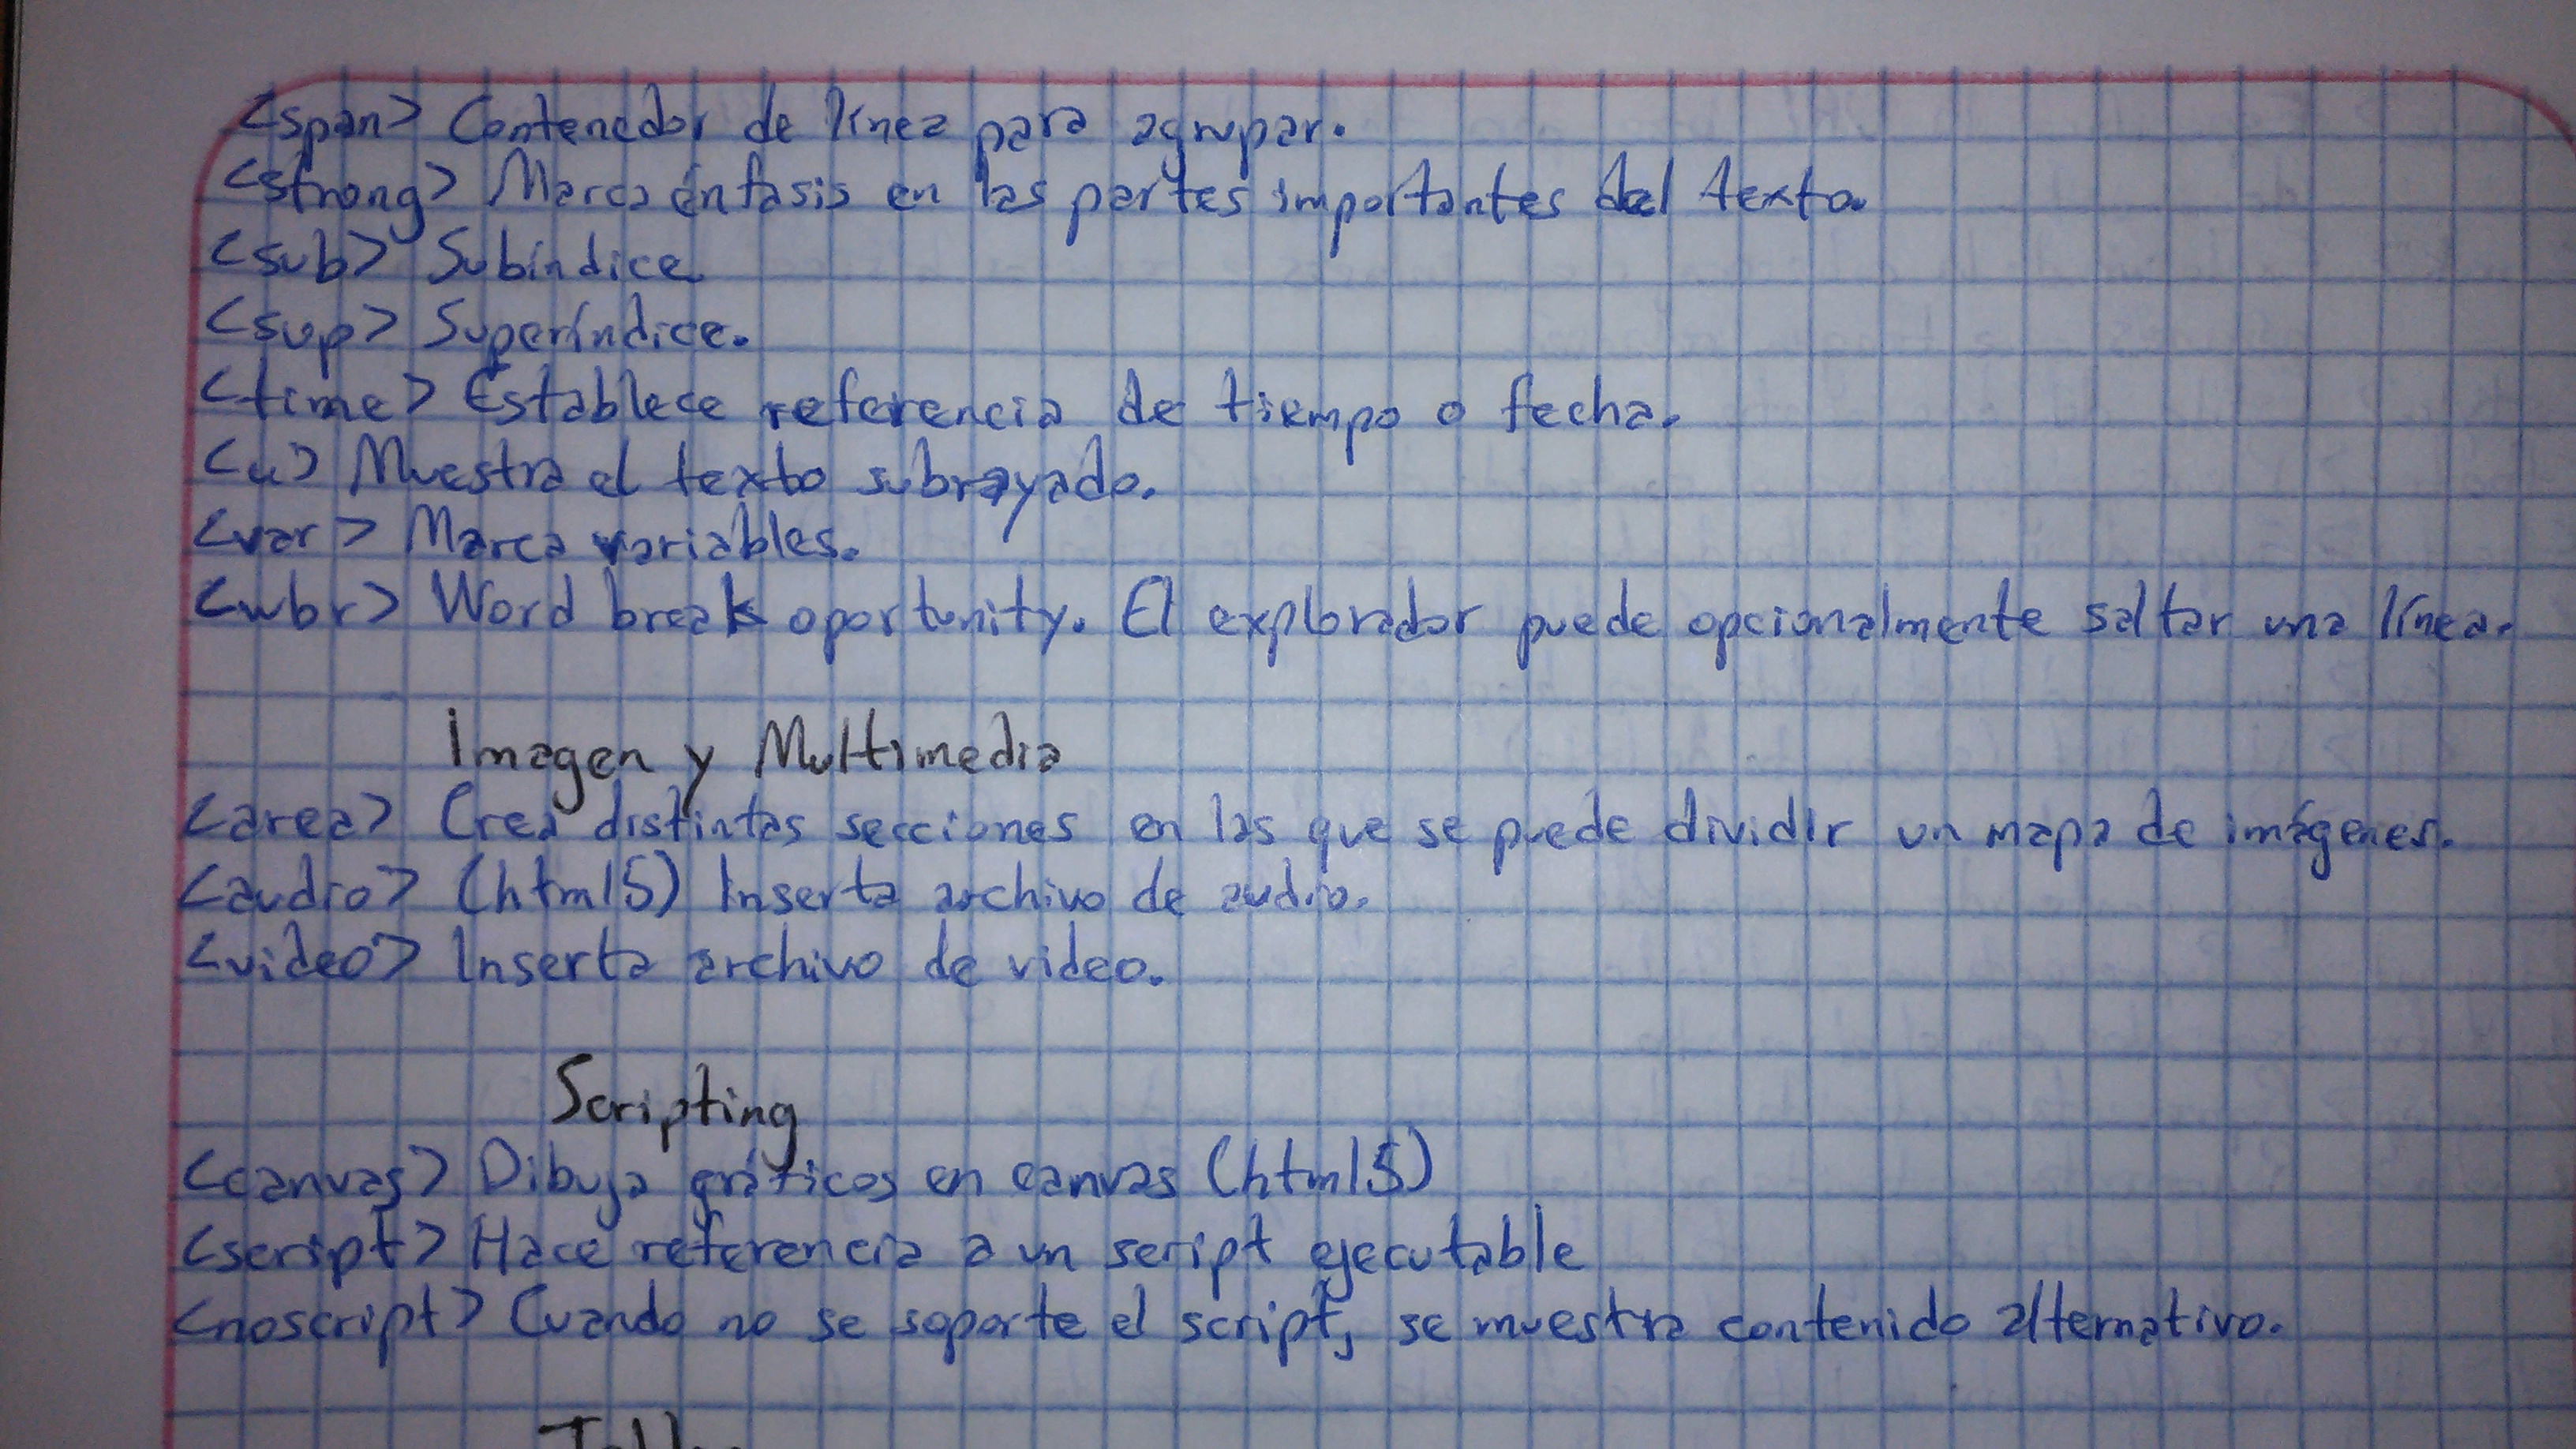 <span> Contenedor de línea para agrupar.
<strong> Marca énfasis en las partes importantes del texto.
<sub> Subíndice
<sup> Superíndice.
<time> Establece referencia de tiempo o fecha.
<u> Muestra el texto subrayado.
<var> Marca variables.
<wbr> Word break oportunity. El explorador puede opcionalmente saltar una línea.
Imagen y Multimedia
<area> Crea distintas secciones en las que se puede dividir un mapa de imágenes.
<audio> (html5) Inserta archivo de audio.
<video> Inserta archivo de video.
Scripting
<canvas> Dibuja gráficos en canvas (html5)
<script> Hace referencia a un script ejecutable
<noscript> Cuando no se soporte el script, se muestra contenido alternativo.